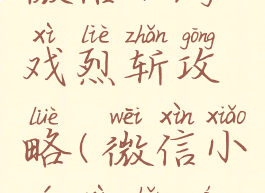 xì liè zhǎn gōng
戏烈斩攻
lüè wēi xìn xiǎo
略(微信小